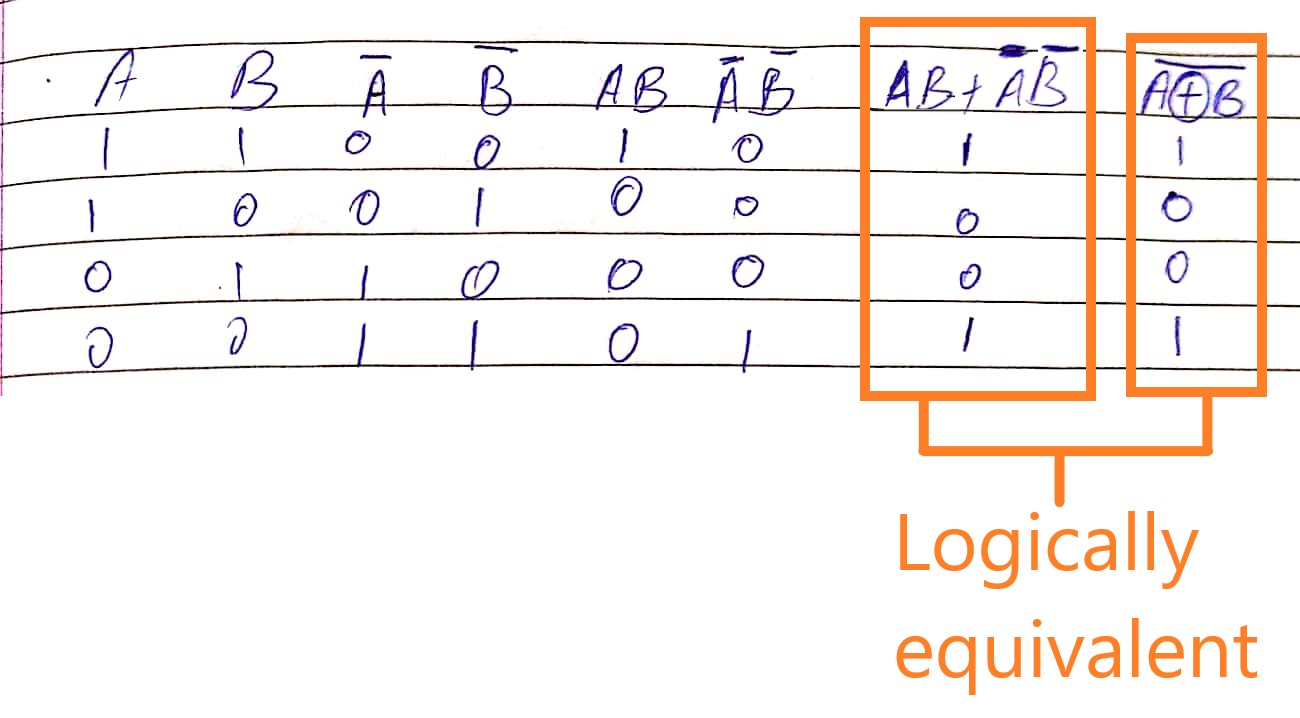 A B A̅ B̅ AB A̅ B̅ AB + A̅ B̅ A̅⊕̅B̅
1 1 0 0 1 0 1 1
1 0 0 1 0 0 0 0
0 1 1 0 0 0 0 0
0 0 1 1 0 1 1 1
Logically
equivalent